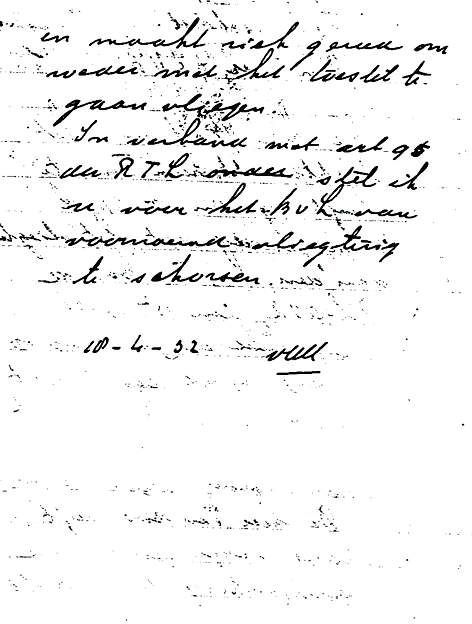 en maakt zich gereed om
weder met het toestel te
gaan vliegen.
In verband met art 95
der RTL onder stel ik
u voor het BvL van
voornoemd vliegtuig
te schorsen.
18-4-52